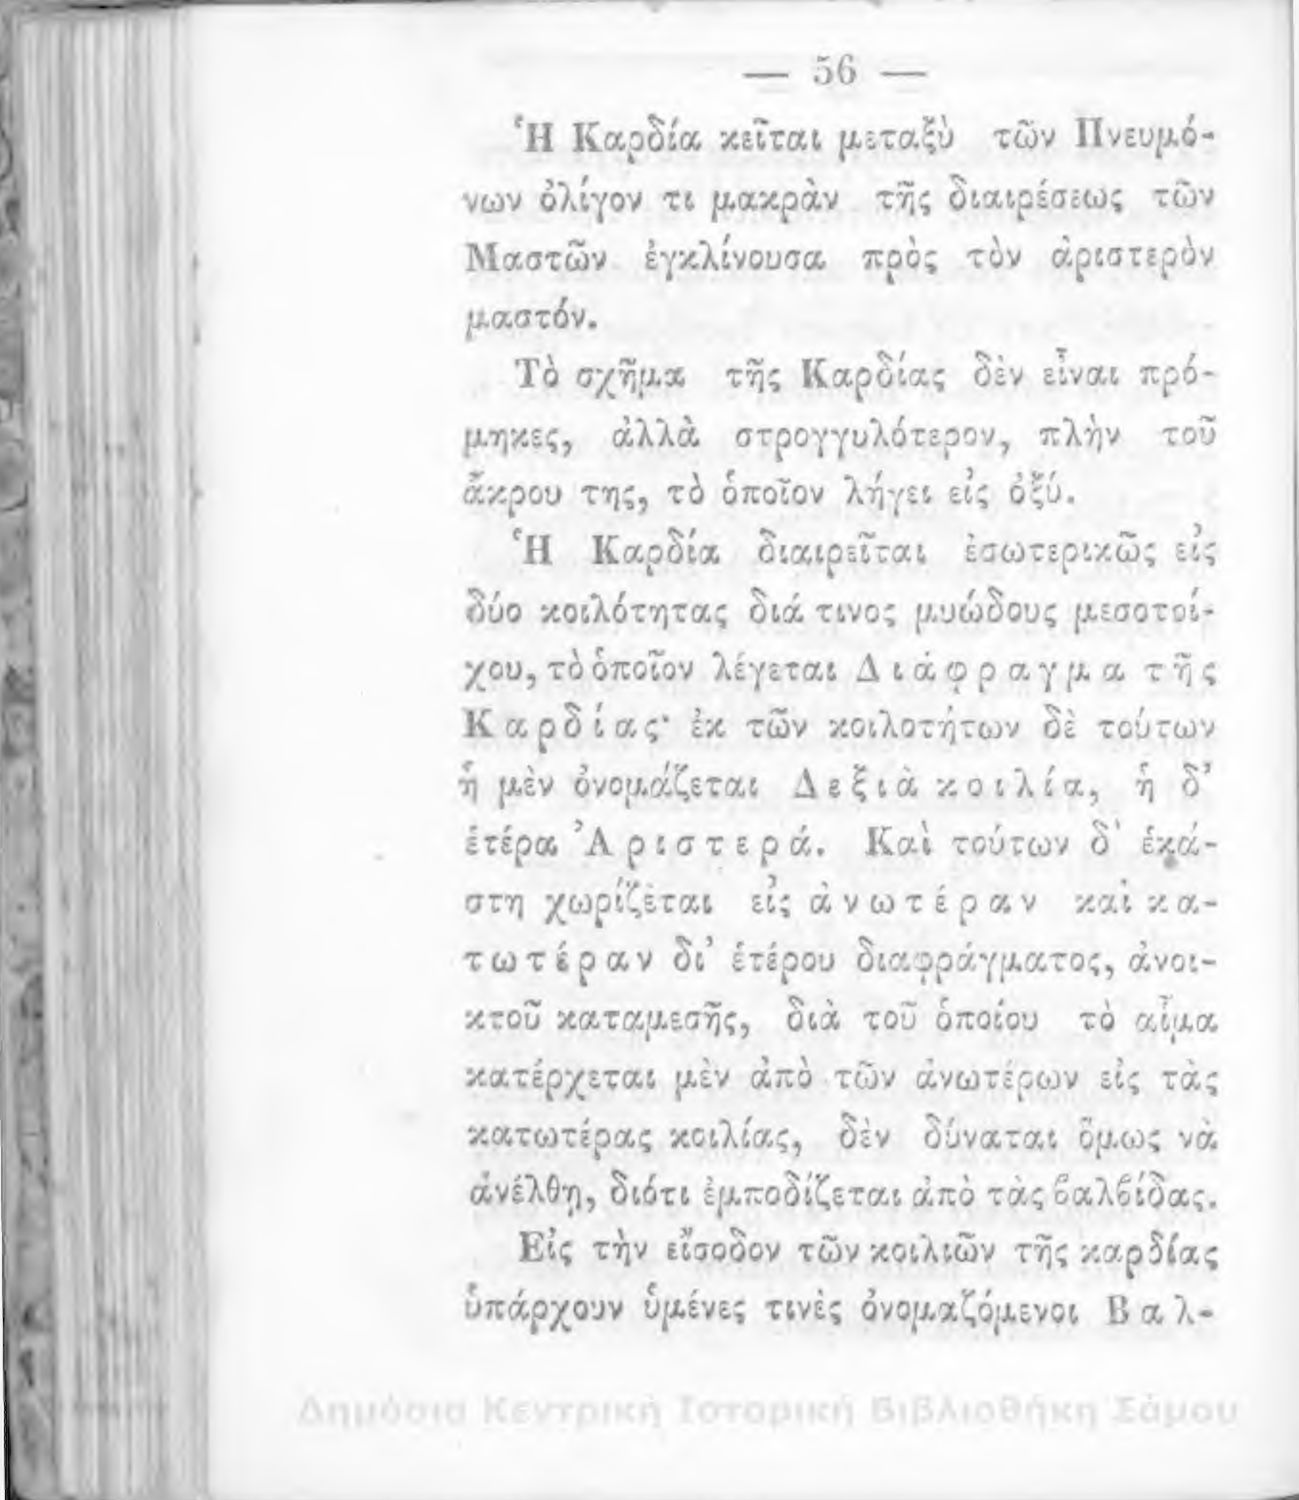 — 56 —
Ἡ Καρδία κεῖται μεταξὺ τῶν Πνευμό-
νων ὀλίγον τι μακρὰν τῆς διαιρέσεως τῶν
Μαστῶν ἐγκλίνουσα πρὸς τὸν ἀριστερὸν
μαστόν.
Τὸ σχῆμα τῆς Καρδίας δὲν εἶναι πρό-
μηκες, ἀλλὰ στρογγυλότερον, πλὴν τοῦ
ἄκρου της, τὸ ὁποῖον λήγει εἰς ὀξύ.
Ἡ Καρδία διαιρεῖται ἐσωτερικῶς εἰς
δύο κοιλότητας διά τινος μυώδους μεσοτοί-
χου, τὸ ὁποῖον λέγεται Διάφραγμα τῆς
Καρδίας· ἐκ τῶν κοιλοτήτων δὲ τούτων
ἡ μὲν ὀνομάζεται Δεξιὰ κοιλία, ἡ δ᾽
ἑτέρα Ἀριστερά. Καὶ τούτων δ᾽ ἑκά-
στη χωρίζεται εἰς ἀνωτέραν καὶ κα-
τωτέραν δι᾽ ἑτέρου διαφράγματος, ἀνοι-
κτοῦ καταμεσῆς, διὰ τοῦ ὁποίου τὸ αἷμα
κατέρχεται μὲν ἀπὸ τῶν ἀνωτέρων εἰς τὰς
κατωτέρας κοιλίας, δὲν δύναται ὅμως νὰ
ἀνέλθῃ, διότι ἐμποδίζεται ἀπὸ τὰς βαλβίδας.
Εἰς τὴν εἴσοδον τῶν κοιλιῶν τῆς καρδίας
ὑπάρχουν ὑμένες τινὲς ὀνομαζόμενοι Βαλ-
Δημόσια Κεντρική Ιστορική Βιβλιοθήκη Σάμου